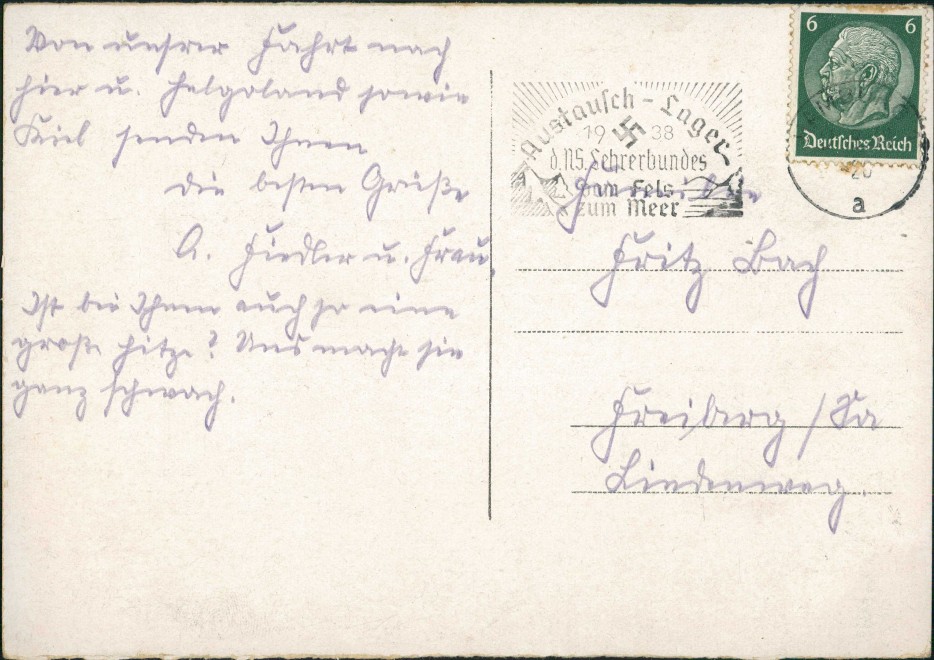 Von unsrer Fahrt nach
hier u. Helgoland sowie
Kiel senden Ihnen
die besten Grüße
A. Fiedler u. Frau.
Ist bei Ihnen auch so eine
große Hitze? Uns macht sie
ganz schwach.
6 6
Deutsches Reich
20
a
Austausch-Lager
19 38
d. NS. Lehrerbundes
vom Fels
zum Meer
Fritz Bach
Freiberg / Sa
Lindenweg.